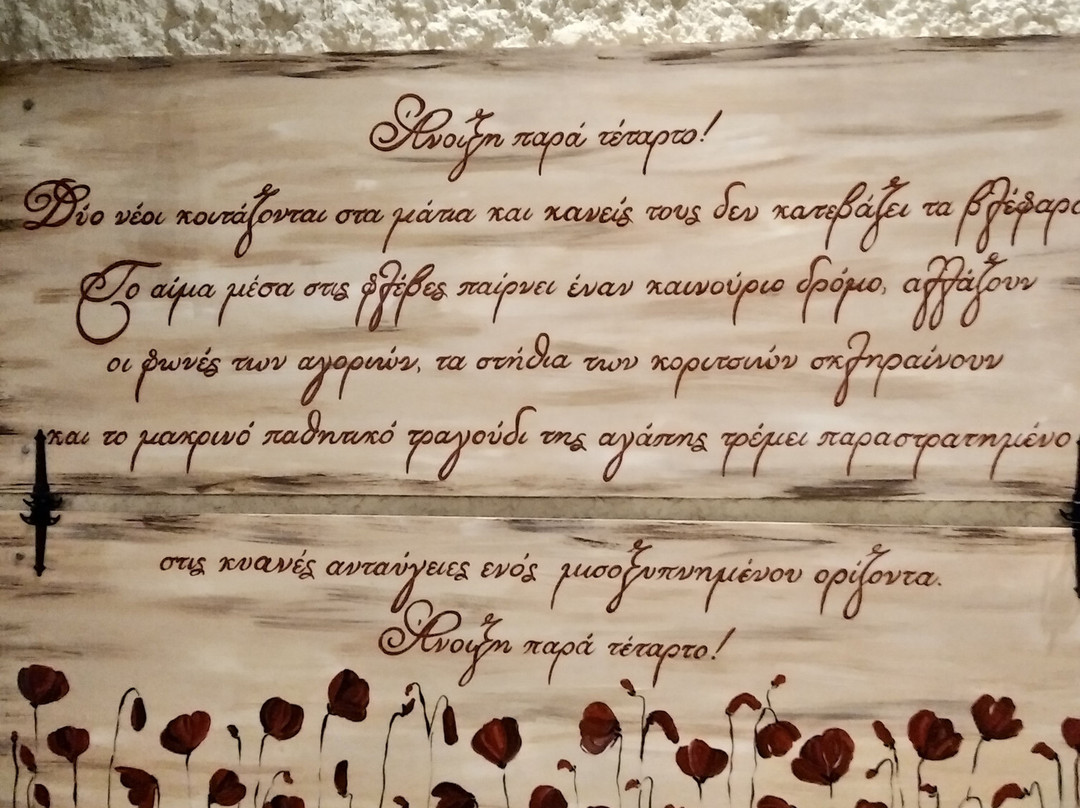 Άνοιξη παρά τέταρτο!
Δύο νέοι κοιτάζονται στα μάτια και κανείς τους δεν κατεβάζει τα βλέφαρα
Το αίμα μέσα στις φλέβες παίρνει έναν καινούριο δρόμο, αλλάζουν
οι φωνές των αγοριών, τα στήθια των κοριτσιών σκληραίνουν
και το μακρινό παθητικό τραγούδι της αγάπης τρέμει παραστρατημένο
στις κυανές ανταύγειες ενός μισοξυπνημένου ορίζοντα.
Άνοιξη παρά τέταρτο!